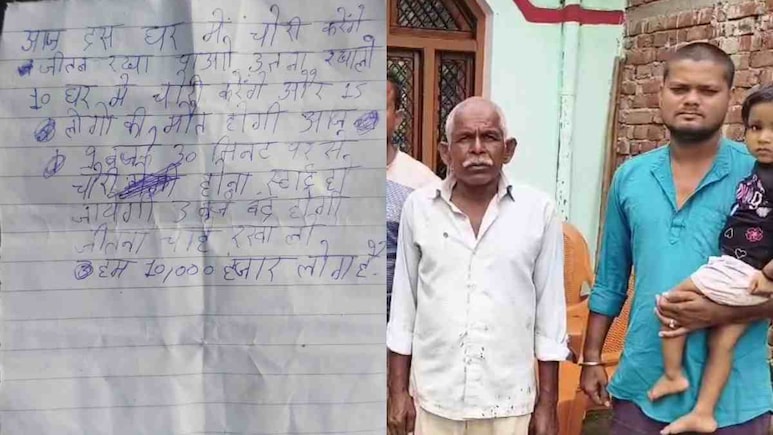 आज दस घर में चोरी करेंगे
जीतना रखा पाओ उतना रखालो
10 घर मे चोरी करेंगे और 15
लोगो की मौत होगी आज
9 बजकर 30 मिनट पर से
चोरी होना स्टार्ट हो
जायेगा 3 बजे बंद होगा
जीतना चाहे रखा लो
हम 10,000 हजार लोग है.